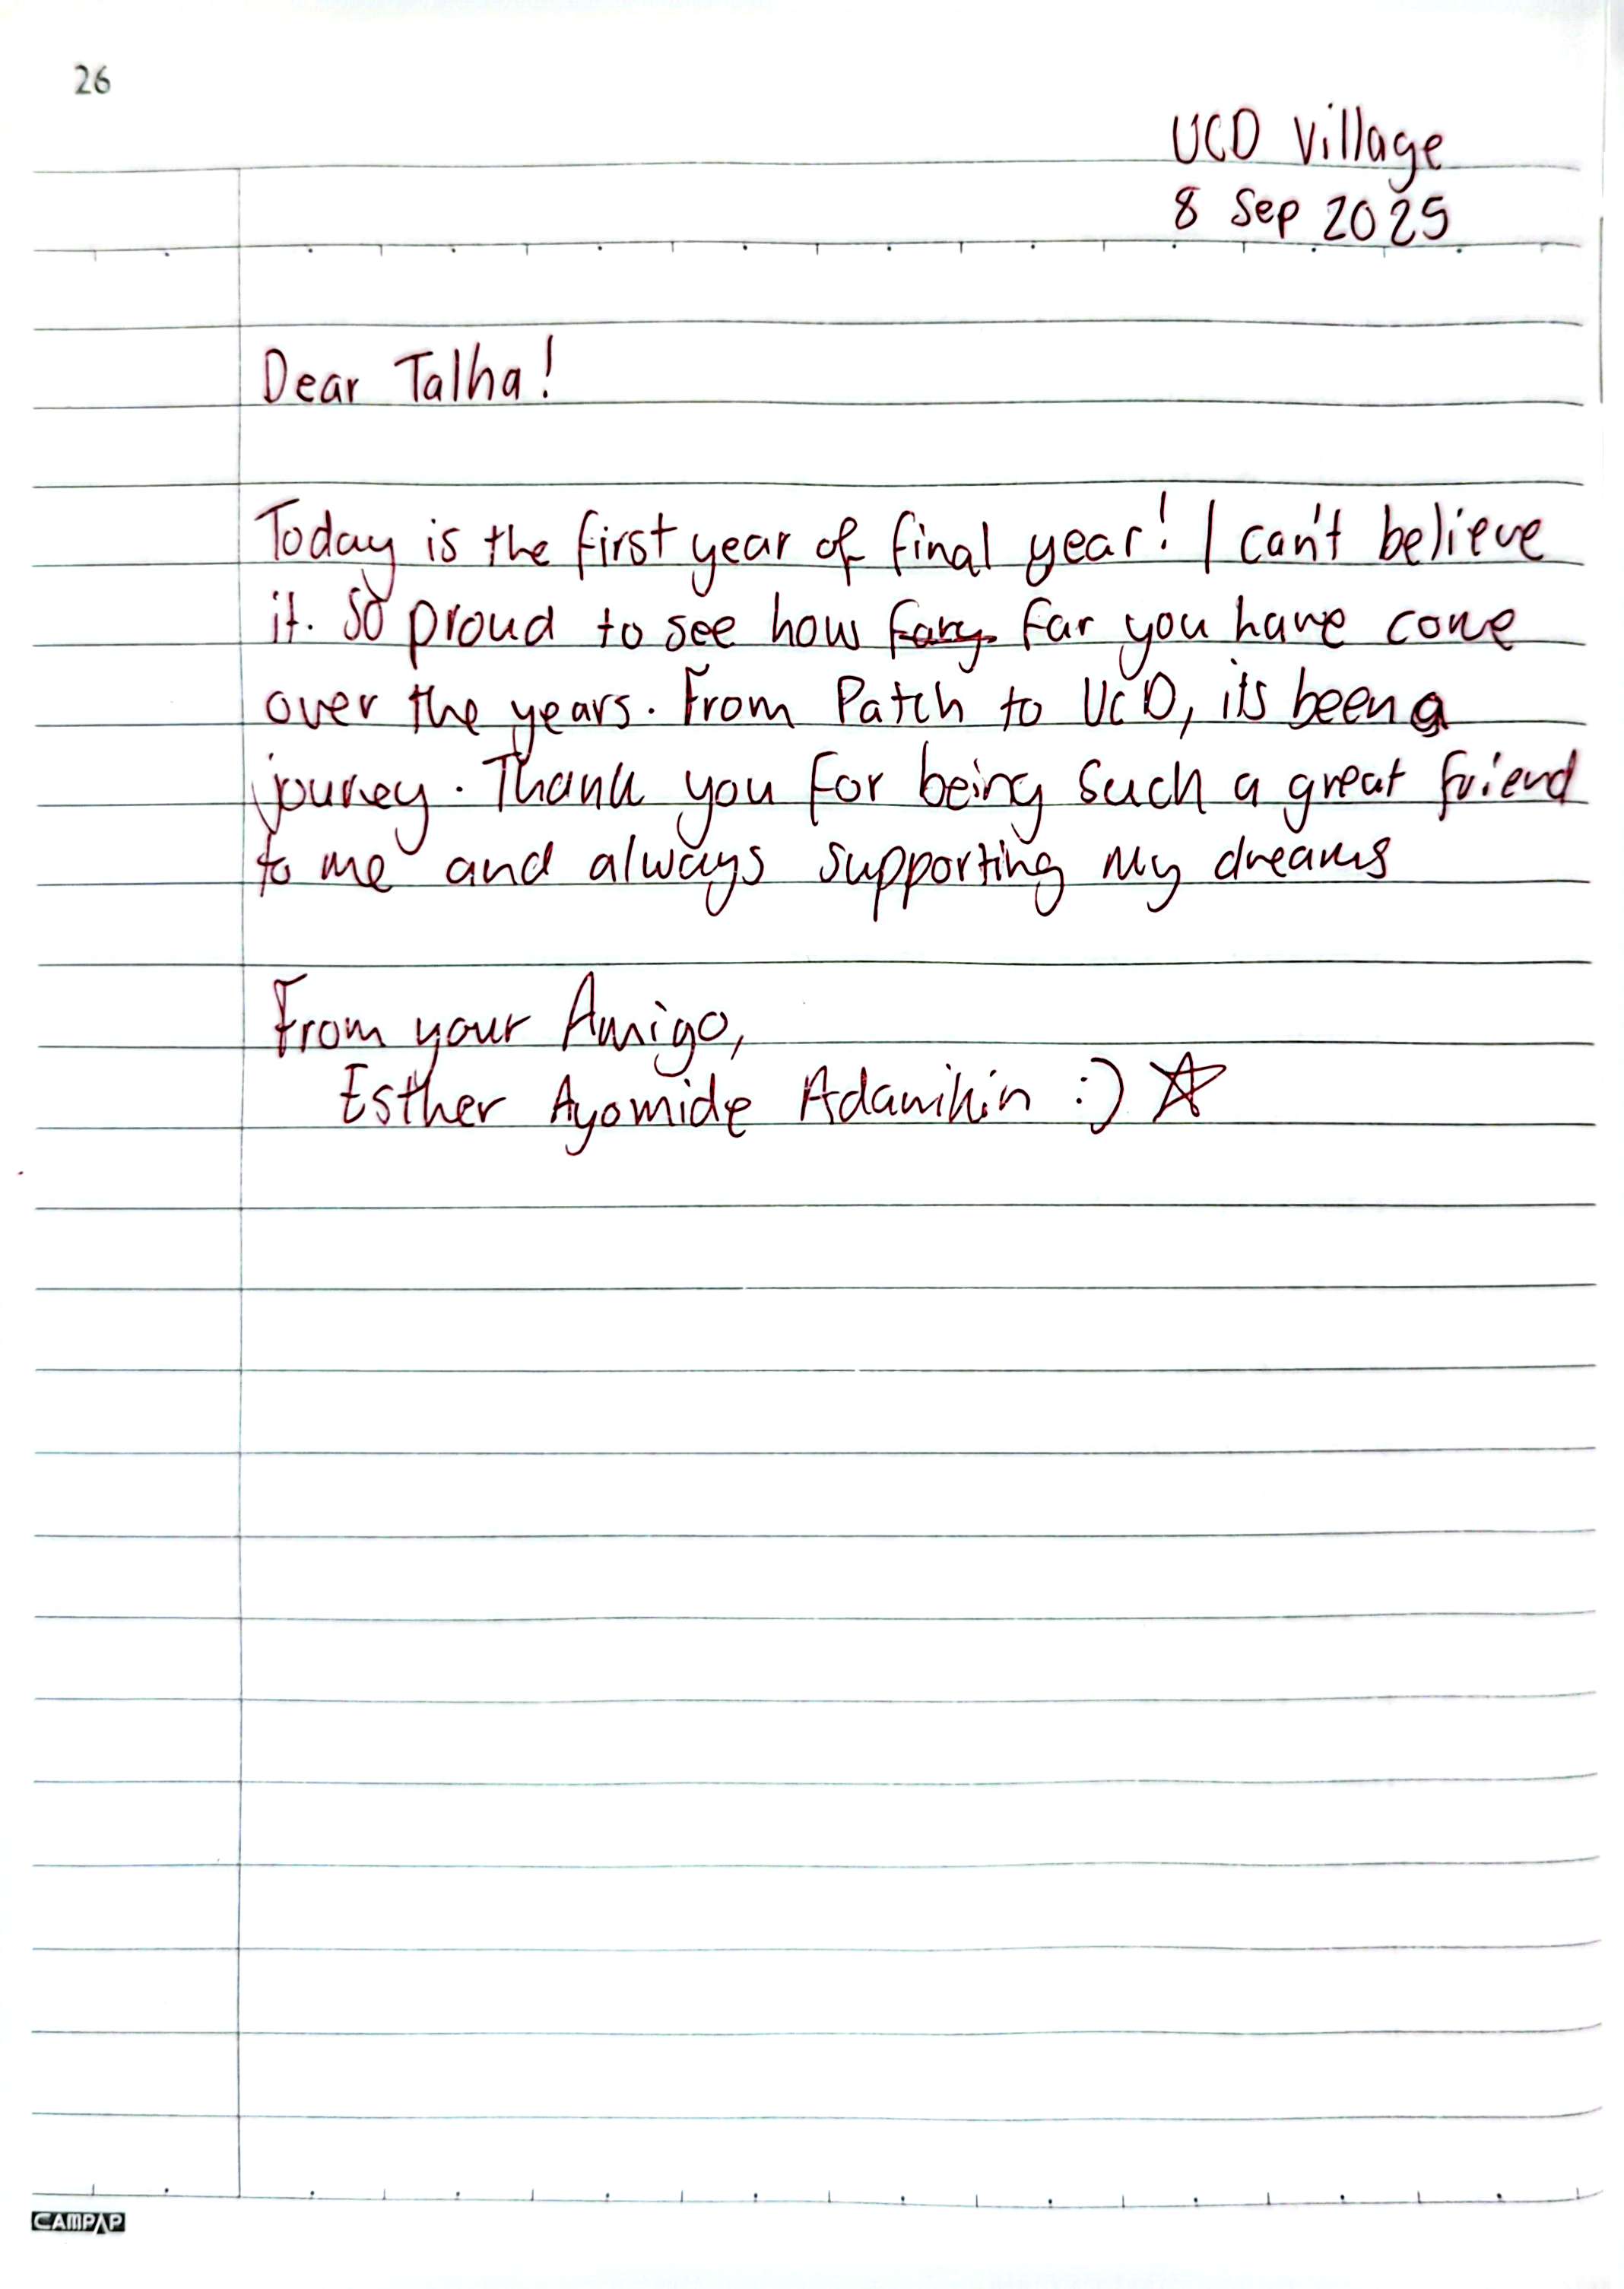 26
UCD Village
8 Sep 2025
Dear Talha!
Today is the first year of final year! I can't believe
it. So proud to see how far you have come
over the years. From Patch to UCD, its been a
journey. Thank you for being such a great friend
to me and always supporting my dreams
From your Amigo,
Esther Ayomide Adanikin :) ☆
CAMPAP